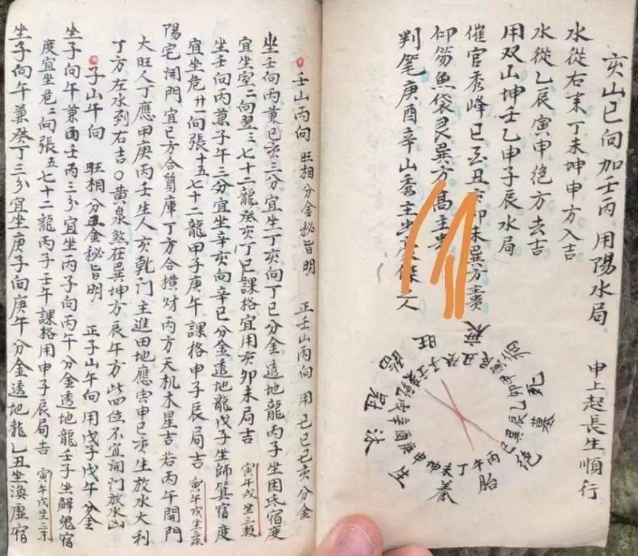 亥山巳向加壬丙 用陽水局
水從右來丁未坤申方入吉
水從乙辰寅甲絶方去吉
用双山坤壬乙申子辰水局
催官秀峰巳
卯未巽方
仰笏魚袋艮巽方高主
判笔庚酉辛山秀主
人
申上起長生順行
旺
衰
病
死
墓
絶
胎
養
生
沐
冠
臨
丙午丁未坤申庚酉辛戌乾亥壬子癸丑艮寅甲卯乙辰巽巳
壬山丙向 旺相分金秘旨明 正壬山丙向 用己巳己亥分金
坐壬向丙兼巳亥三分宜坐丁亥向丁巳分金透地龍丙子坐困氐宿度
宜坐室二向翌三七十二龍癸亥丁巳課格宜用亥卯未局吉 寅午戌坐三殺
坐壬向丙兼子午三分宜坐辛亥向辛巳分金透地龍戊子坐師箕宿度
宜坐危廿一向張十五七十二龍甲子庚午課格申子辰局吉 寅午戌坐三杀
陽宅開門宜巳方合貿庫丁方合横财丙方天机木星吉 若丙午開門
大旺人丁應甲庚丙壬生人亥乾門主進田地應寅申巳亥生放水大利
丁方左水到右吉○黄泉煞在巽坤方辰午方此四位不宜開门放水山
子山午向 旺相分金秘旨明 正子山午向 用戊子戊午分金
坐子向午兼壬丙三分宜坐丙子向丙午分金透地龍壬子坐解鬼宿
度宜坐危二向張五七十二龍丙子壬午課格用申子辰局吉 寅午戌坐三杀
坐子向午兼癸丁三分宜坐庚子向庚午分金透地龍乙丑坐渙虛宿